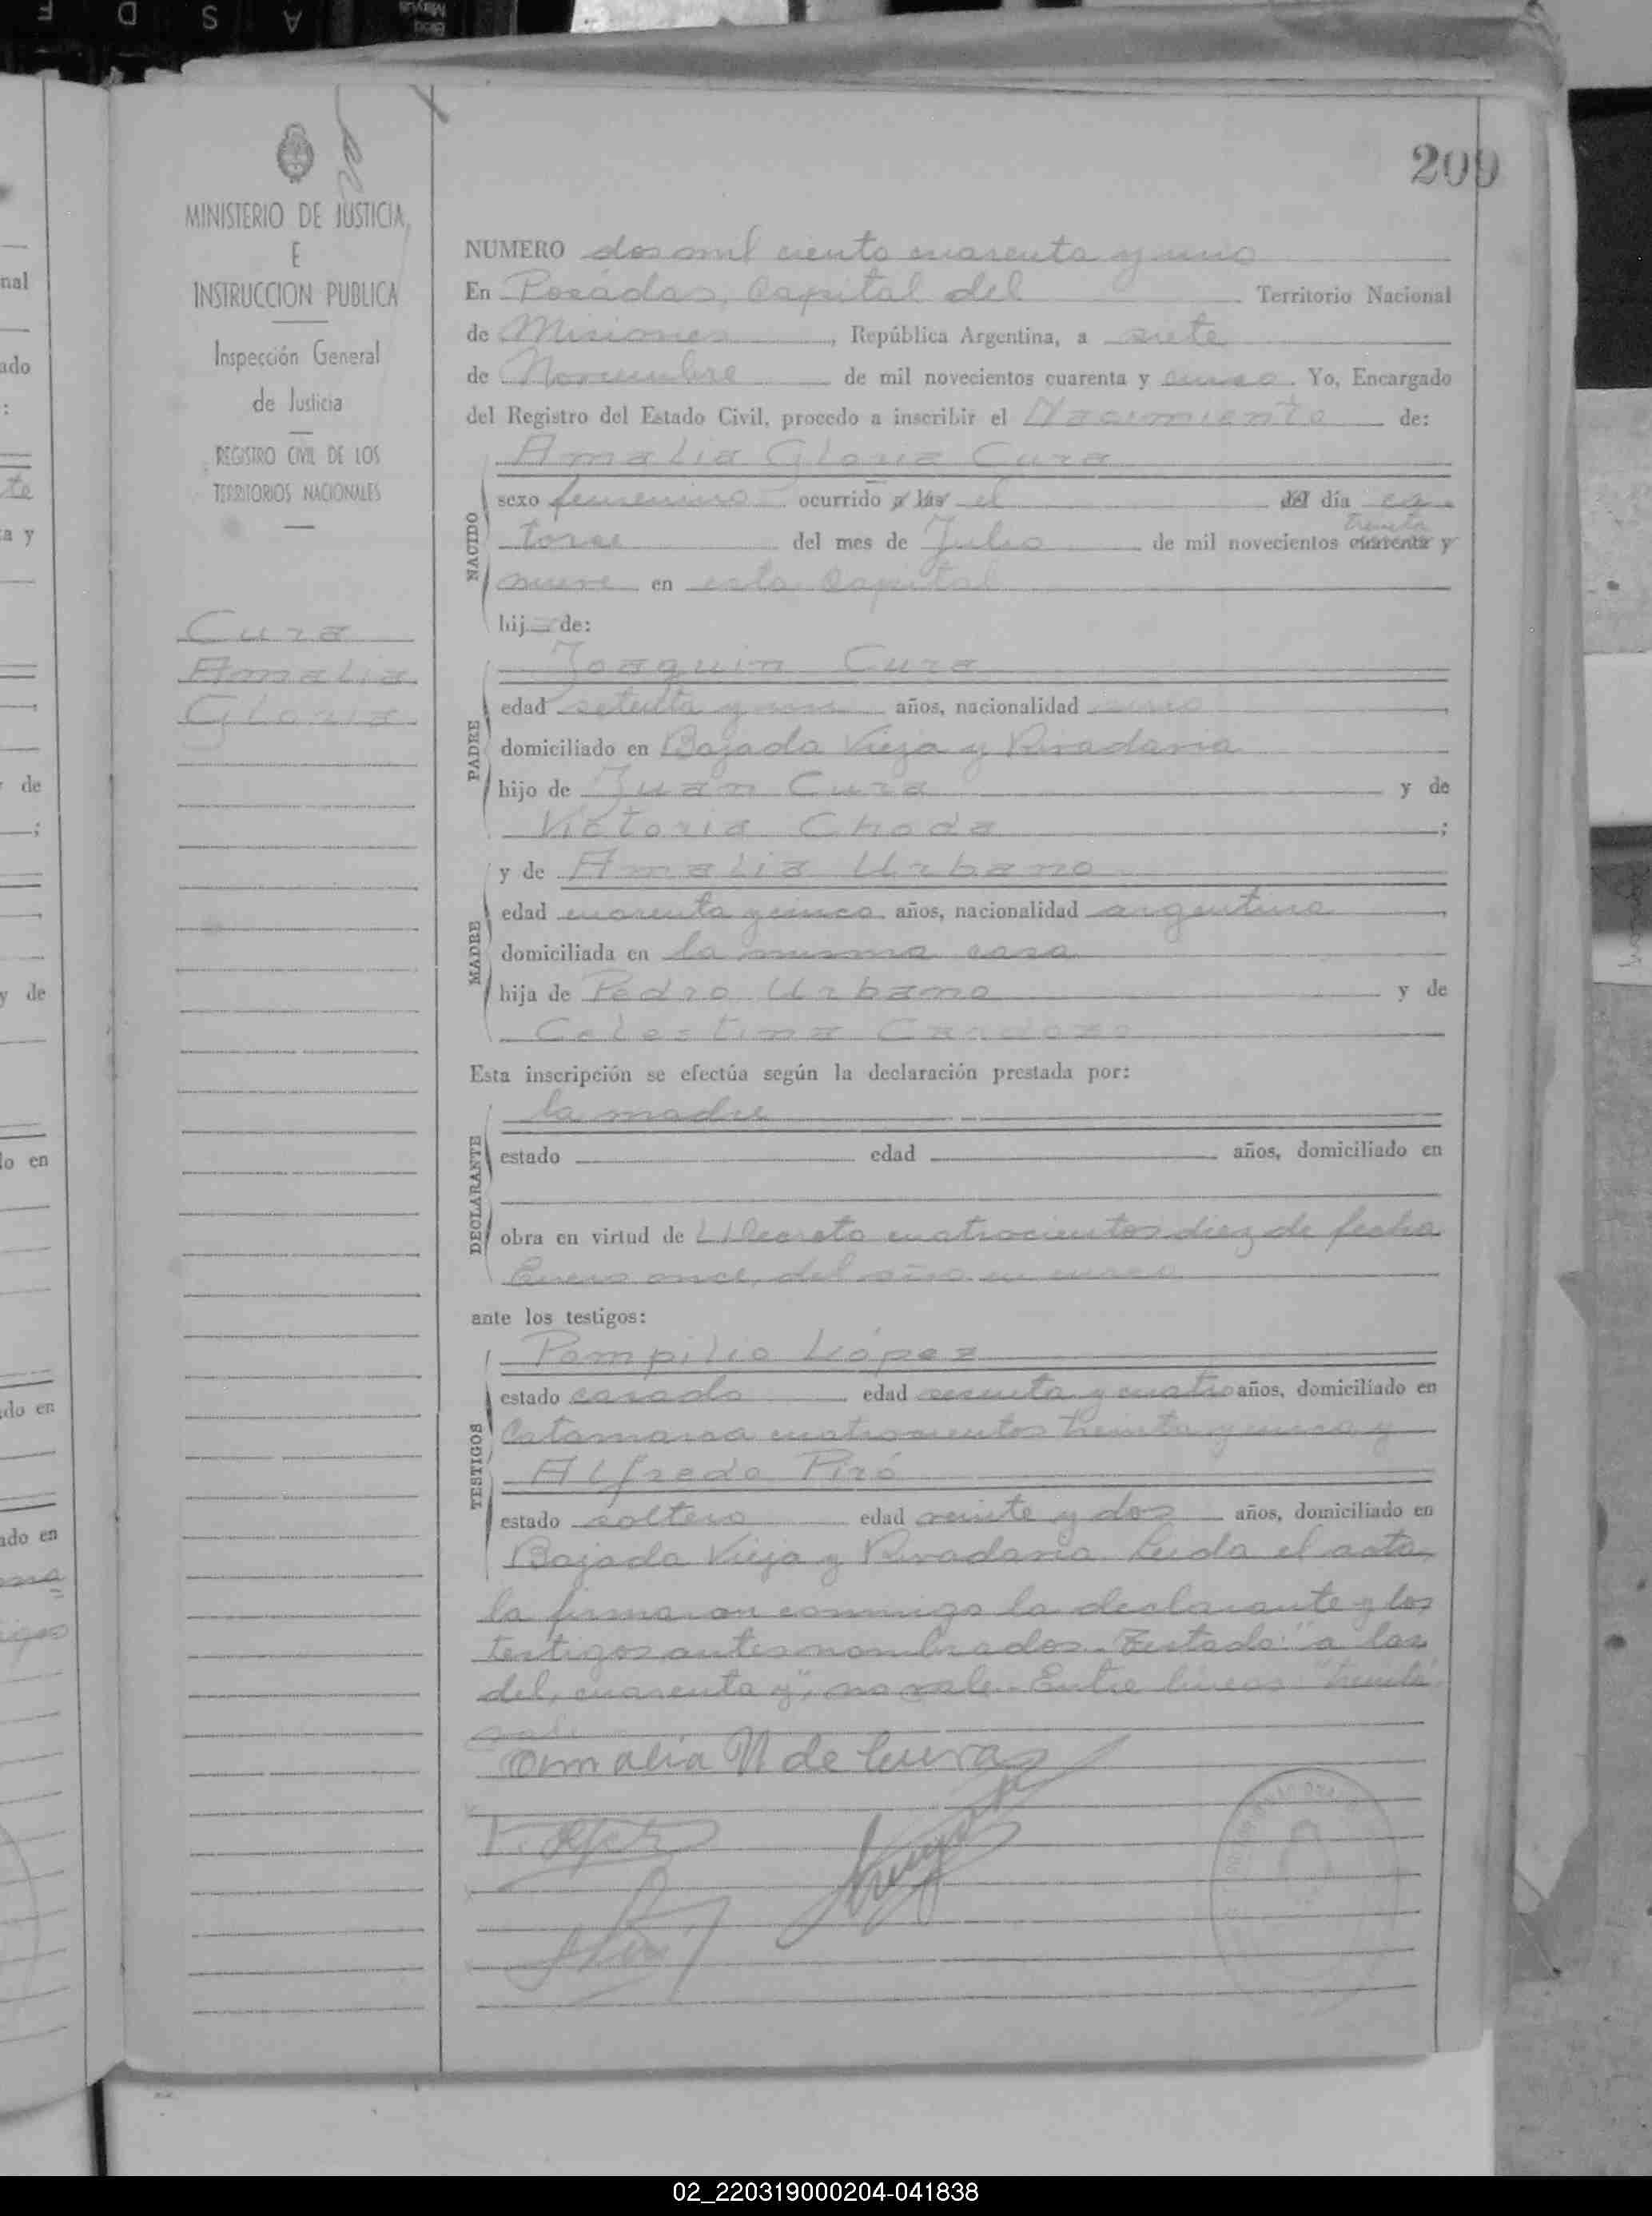 209
MINISTERIO DE JUSTICIA
E
INSTRUCCION PUBLICA
Inspección General
de Justicia
REGISTRO CIVIL DE LOS
TERRITORIOS NACIONALES
Cura
Amalia
Gloria
NUMERO dos mil ciento cuarenta y uno
En Posadas, Capital del Territorio Nacional
de Misiones, República Argentina, a siete
de Noviembre de mil novecientos cuarenta y cinco. Yo, Encargado
del Registro del Estado Civil, procedo a inscribir el Nacimiento de:
Amalia Gloria Cura
NACIDO
sexo femenino ocurrido a las el del día ca-
treinta
torce del mes de Julio de mil novecientos cuarenta y
nueve en esta Capital
hija de:
PADRE
Joaquin Cura
edad setenta y años, nacionalidad
domiciliado en Bajada Vieja y Rivadavia
hijo de Juan Cura y de
Victoria Choda;
MADRE
y de Amalia Urbano
edad cuarenta y cinco años, nacionalidad argentina
domiciliada en la misma casa
hija de Pedro Urbano y de
Celestina Cardozo
Esta inscripción se efectúa según la declaración prestada por:
DECLARANTE
la madre
estado edad años, domiciliado en
obra en virtud de Decreto cuatrocientos diez de fecha
Enero once, del año en curso
ante los testigos:
TESTIGOS
Pompilio López
estado casado edad sesenta y cuatro años, domiciliado en
Catamarca cuatrocientos treinta y cinco y
Alfredo Piró
estado soltero edad veinte y dos años, domiciliado en
Bajada Vieja y Rivadavia. Leida el acta,
la firmaron conmigo la declarante y los
testigos antes nombrados. Testado: "a las
del, cuarenta y", no vale. Entre lineas: "treinta"
vale
Amalia U de Cura
02_220319000204-041838